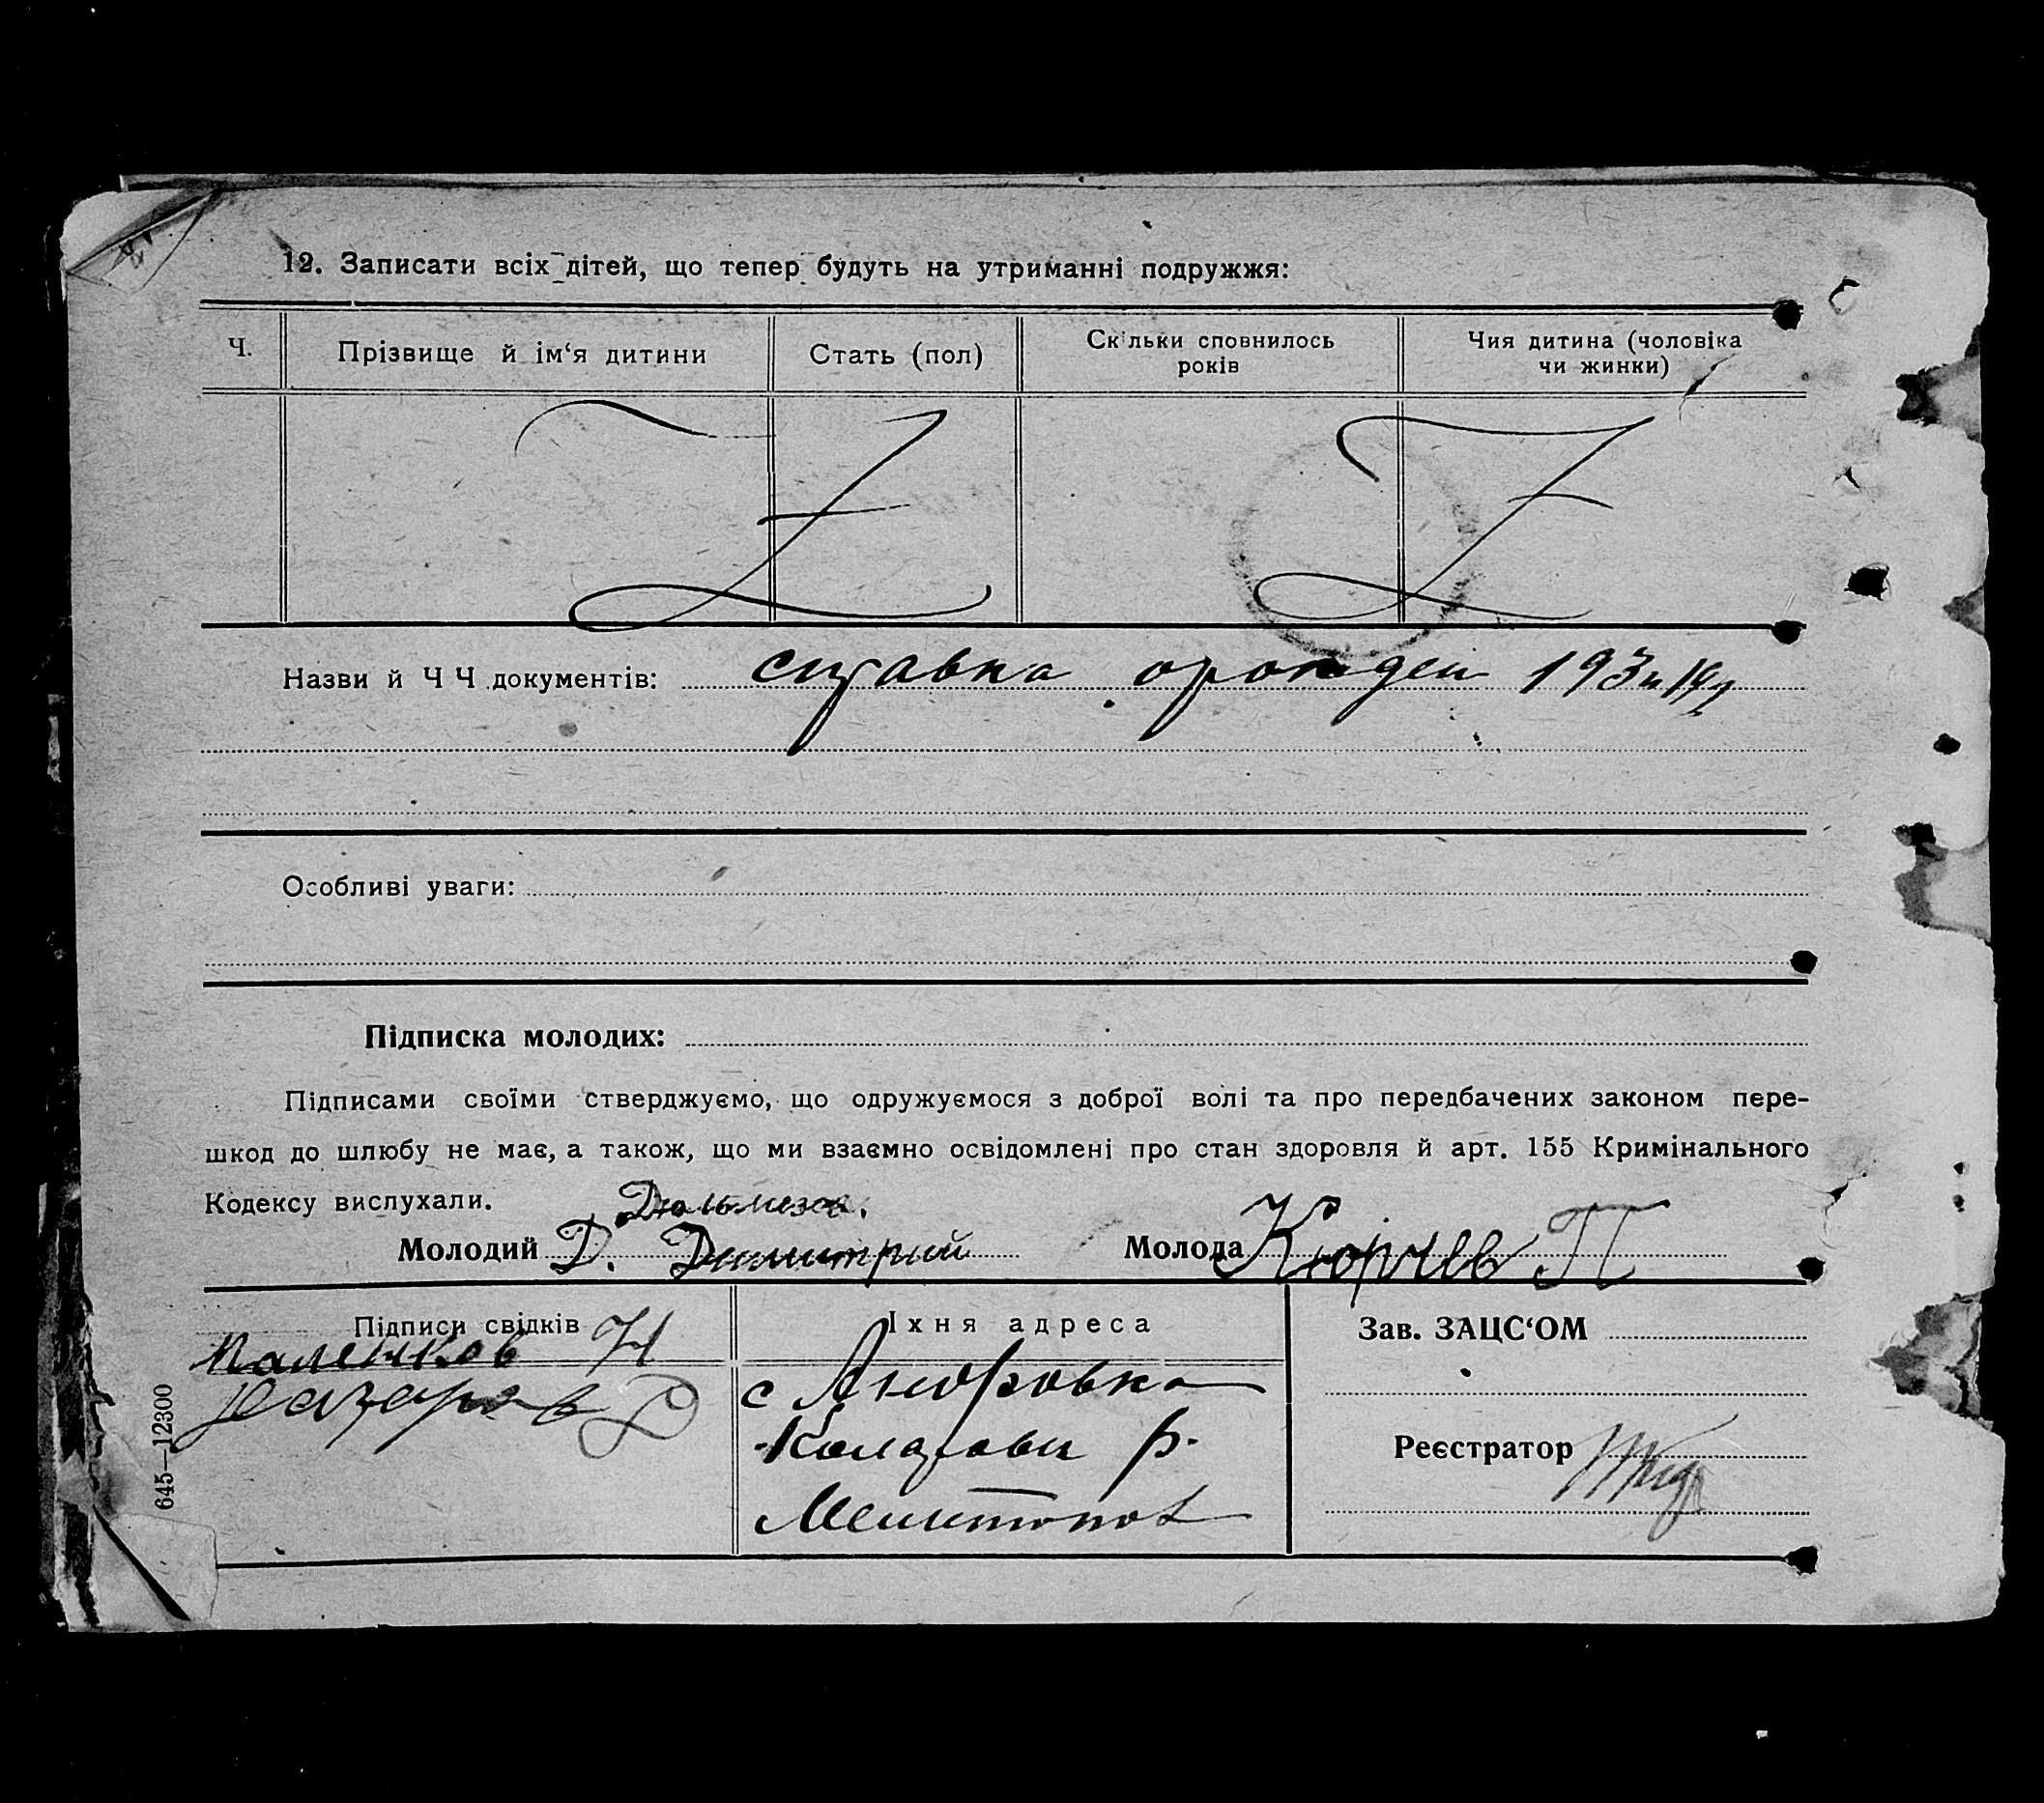 12. Записати всіх дітей, що тепер будуть на утриманні подружжя:
Ч.
Прізвище й ім‘я дитини
Стать (пол)
Скільки сповнилось
років
Чия дитина (чоловіка
чи жинки)
Назви й Ч Ч документів: справка
Особливі уваги:
Підписка молодих:
Підписами своїми стверджуємо, що одружуємося з доброї волі та про передбачених законом пере-
шкод до шлюбу не має, а також, що ми взаємно освідомлені про стан здоровля й арт. 155 Кримінального
Кодексу вислухали.
Молодий Д. Димитрий
Молода Кюрчев П
Підписи свідків
Їхня адреса
Зав. ЗАЦС‘ОМ
Назаров
с
Р.
Мелитопол
Реєстратор
645—12300